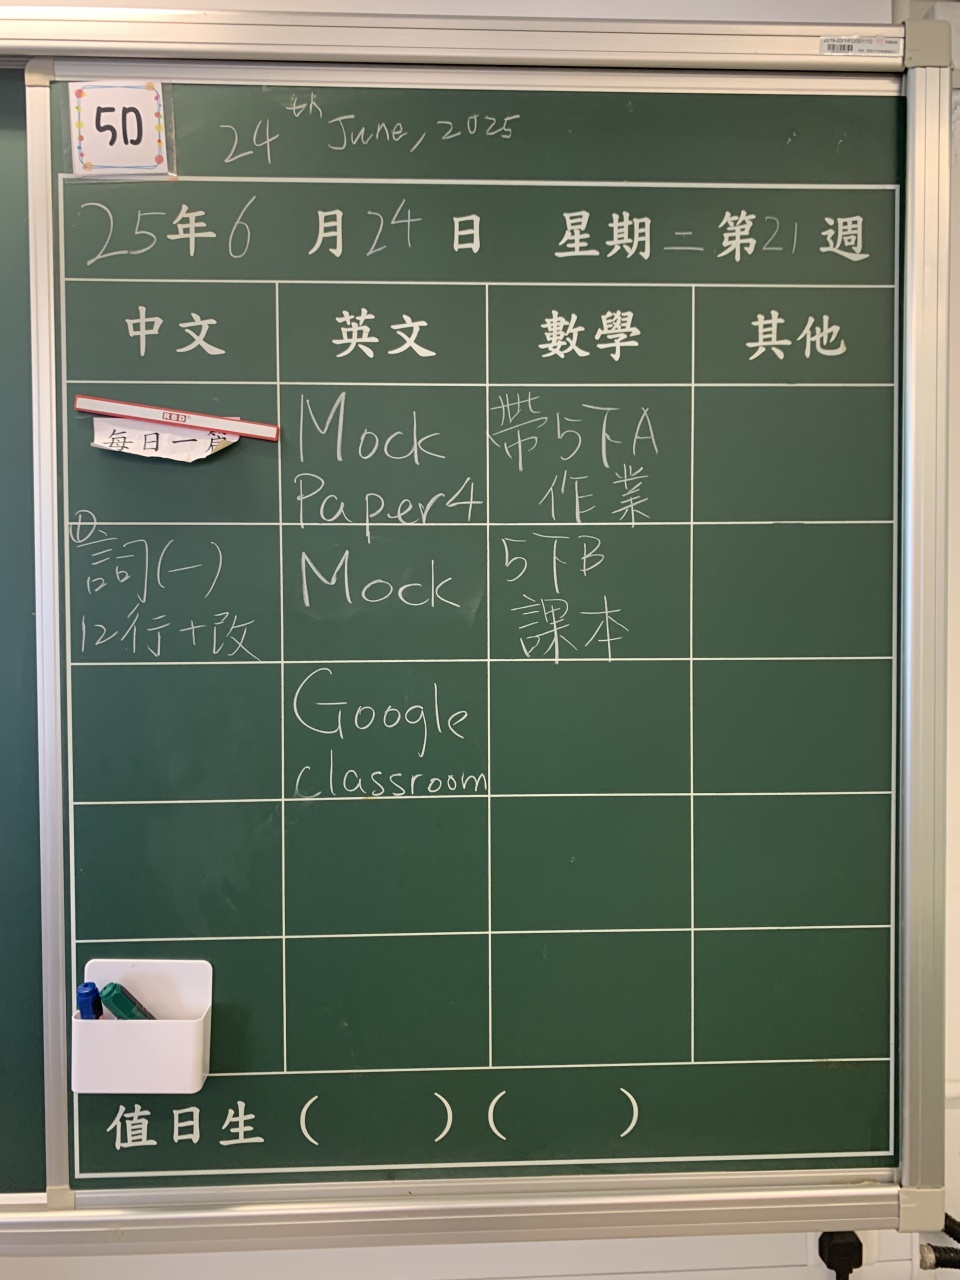 5D
24th June, 2025
25年6月24日 星期二第21週
中文 英文 數學 其他
RBD
每日一篇
Mock
Paper4
帶5下A
作業
①
詞(一)
12行+改
Mock
5下B
課本
Google
classroom
值日生 ( ) ( )